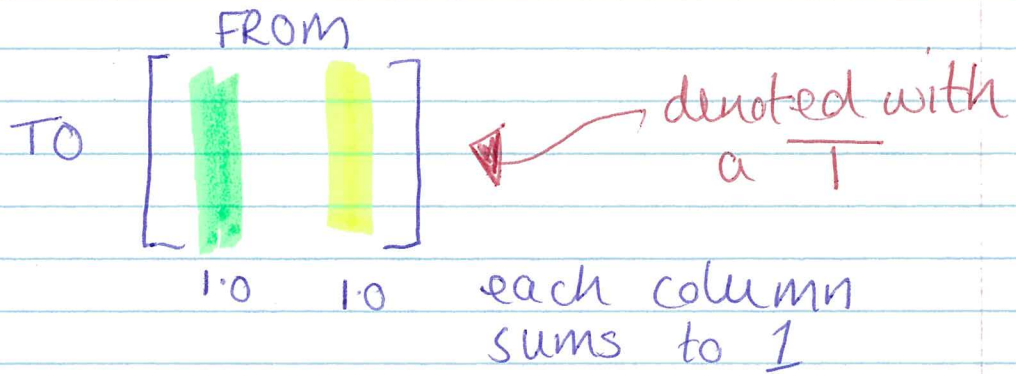 FROM
TO
denoted with
a T
1.0 1.0 each column
sums to 1